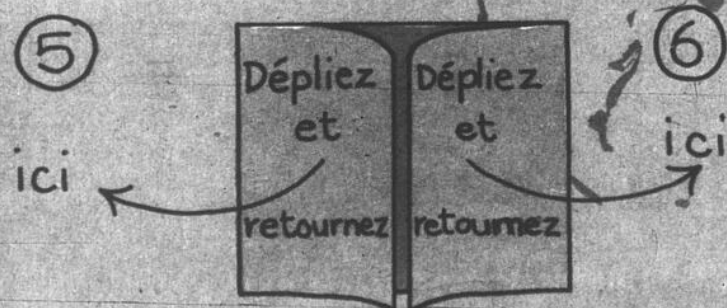 ⑤
⑥
Dépliez
et
retournez
Dépliez
et
retournez
ici
ici